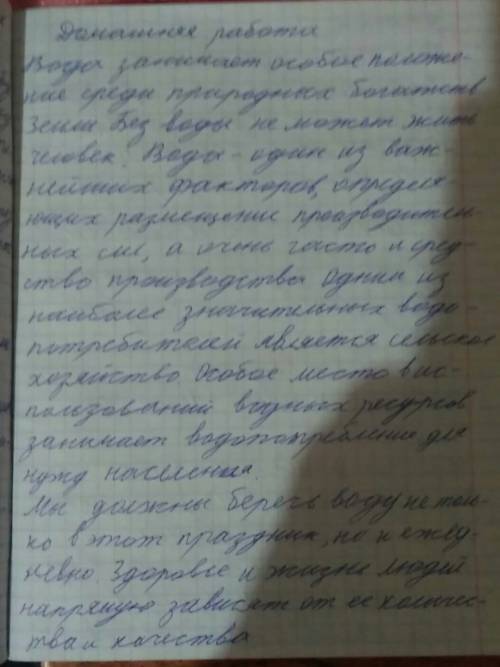 Домашняя работа
Вода занимает особое положе-
ние среди природных богатств
Земли. Без воды не может жить
человек. Вода - один из важ-
нейших факторов, определя-
ющих размещение производитель-
ных сил, а очень часто и сред-
ство производства. Одним из
наиболее значительных водо-
потребителей является сельское
хозяйство. Особое место в ис-
пользований водных ресурсов
занимает водопотребление для
нужд населения.
Мы должны беречь воду не толь-
ко в этот праздник, но и ежед-
невно. Здоровье и жизнь людей
напрямую зависят от ее количес-
тва и качества